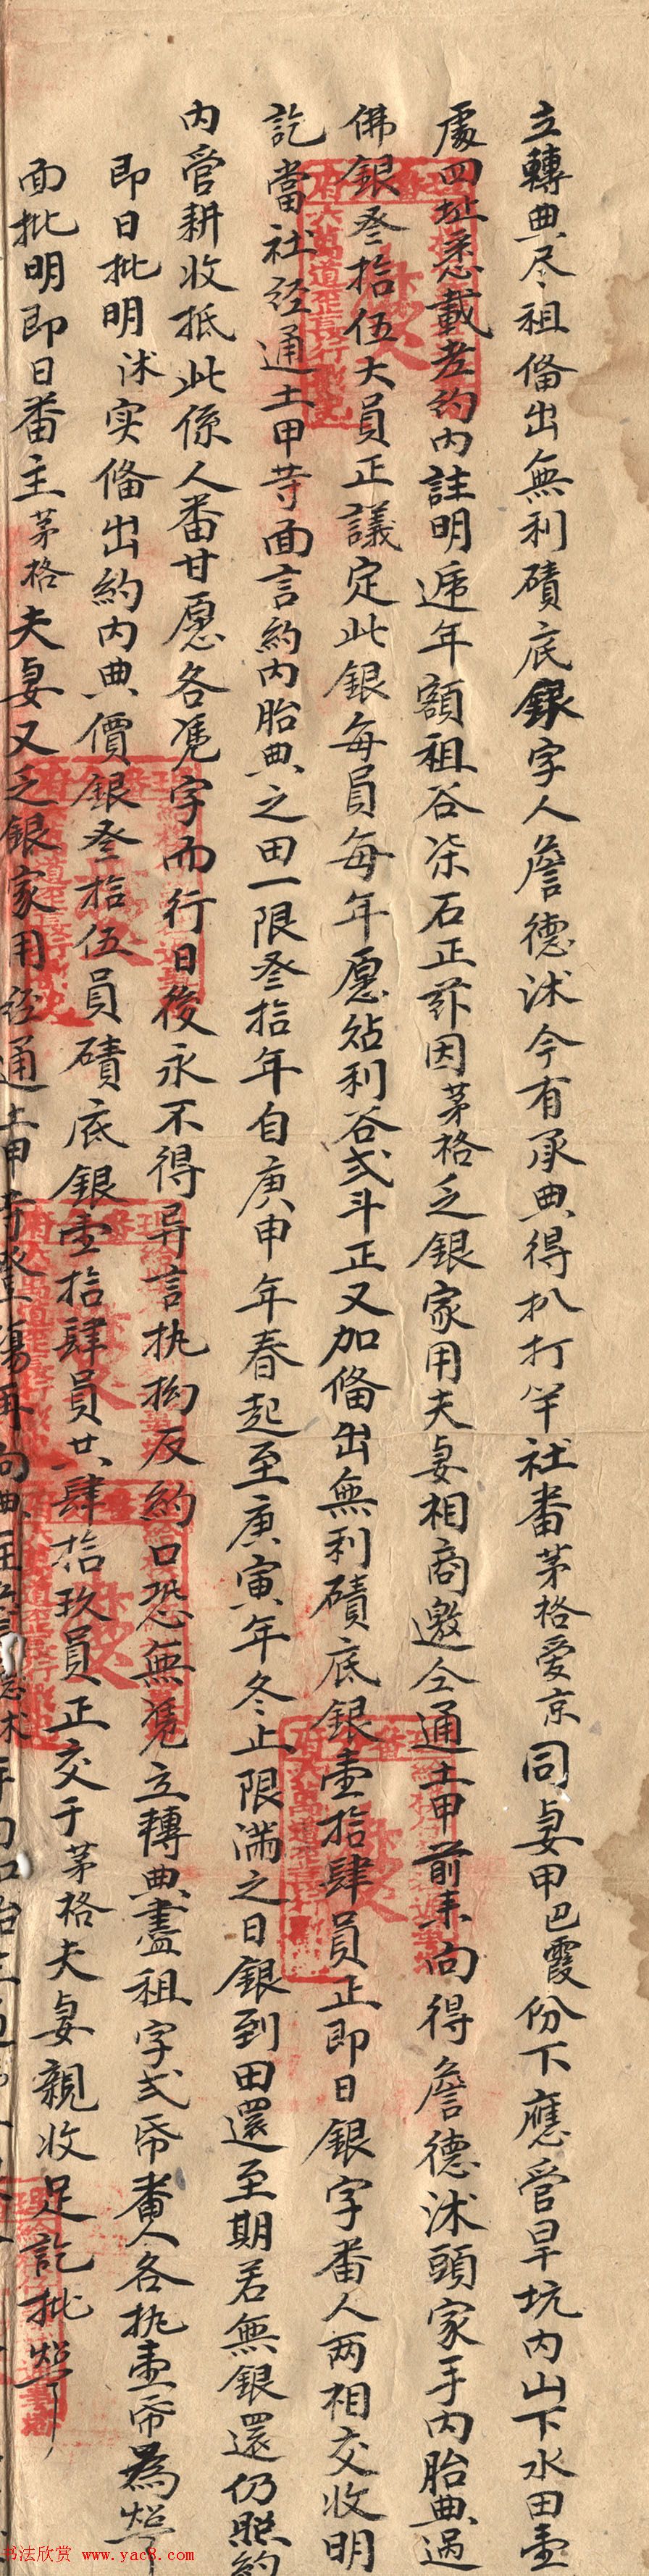 立轉典尽租備出無利磧底銀字人詹德沭今有承典得扒打竿社番茅格爱京同妻甲巴霞份下應管旱坑內山下水田壹
處四址悉載老約內註明遞年額租谷柒石正兹因茅格乏銀家用夫妻相商邀仝通土甲前来向得詹德沭頭家手內胎典過
佛銀叁拾伍大員正議定此銀每員每年愿貼利谷弍斗正又加備出無利磧底銀壹拾肆員正即日銀字番人两相交收明
訖當社经通土甲䓁面言約內胎典之田一限叁拾年自庚申年春起至庚寅年冬止限满之日銀到田還至期若無銀還仍照約
內管耕收抵此係人番甘愿各凴字而行日後永不得异言执拗反約口恐無凴立轉典盡租字弍帋番人各执壹帋為炤
即日批明沭实備出約內典價銀叁拾伍員磧底銀壹拾肆員共肆拾玖員正交于茅格夫妻親收足訖批炤
面批明即日番主茅格夫妻又乏銀家用经通土甲
书法欣赏 www.yac8.com